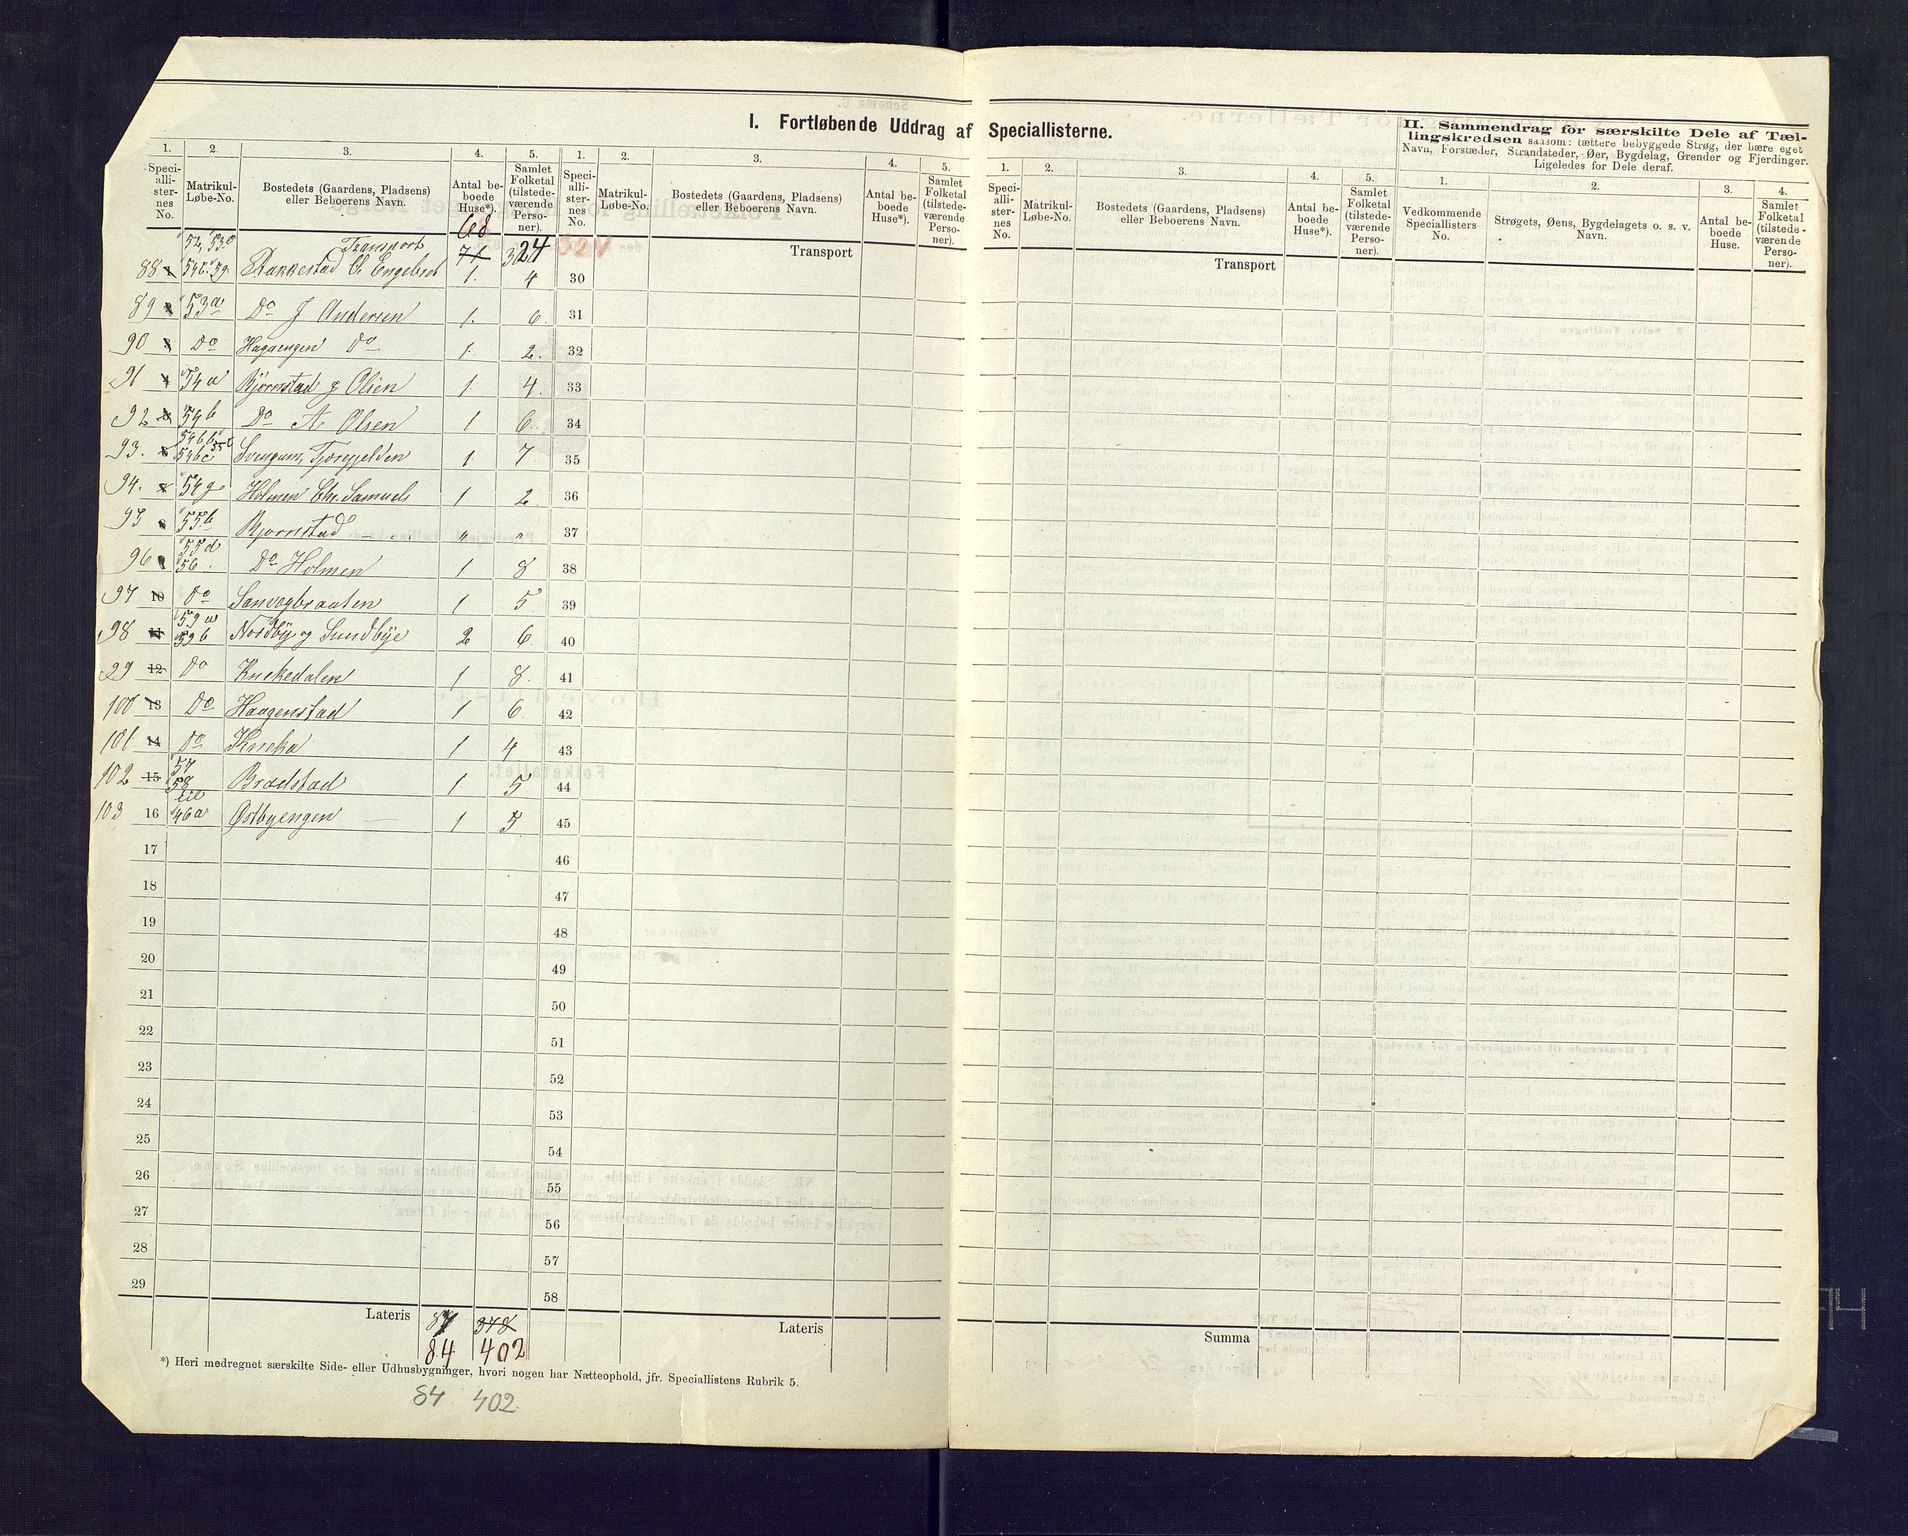 I. Fortløbende Uddrag af Speciallisterne.
1. 2. 3. 4. 5. 1. 2. 3. 4. 5. 1. 2. 3. 4. 5.
Speciallisternes No. Matrikul-Løbe-No. Bostedets (Gaardens, Pladsens) eller Beboerens Navn. Antal beboede Huse*). Samlet Folketal (tilstedeværende Personer).
Speciallisternes No. Matrikul-Løbe-No. Bostedets (Gaardens, Pladsens) eller Beboerens Navn. Antal beboede Huse*). Samlet Folketal (tilstedeværende Personer).
Speciallisternes No. Matrikul-Løbe-No. Bostedets (Gaardens, Pladsens) eller Beboerens Navn. Antal beboede Huse*). Samlet Folketal (tilstedeværende Personer).
II. Sammendrag for særskilte Dele af Tællingskredsen saasom: tættere bebyggede Strøg, der bære eget
Navn, Forstæder, Strandsteder, Øer, Bygdelag, Grender og Fjerdinger.
Ligeledes for Dele deraf.
1. 2. 3. 4.
Vedkommende Speciallisters No. Strøgets, Øens, Bygdelagets o. s. v. Navn. Antal beboede Huse. Samlet Folketal (tilstedeværende Personer).
Transport 68 324 Transport Transport
88 1 Rakkestad Ch Engebret 1. 4 30
89 53a Do J Andersen 1. 6. 31
90 Do Hagaengen Do 1. 2. 32
91 54a Bjørnstad g Olsen 1 4. 33
92 54b Do A Olsen 1 6. 34
93. Svengum, 1 7 35
94. 54g Holmen Chr. Samuels 1 2 36
95 55b Bjornstad " " 37
96 55d 56. Do Holmen 1 8 38
97 10 Do Sanvogbraaten 1 5 39
98 11 59a 59b Nordby og Sundbye 2 6. 40
99 12 Do Knekedalen 1 8. 41
100 13 Do Haagenstad 1 6. 42
101 14 Do Kneka 1 4 43
102 15 57 58 Bradstad 1 5 44
103 16 46a Østbyengen 1 5. 45
17 46
18 47
19 48
20 49
21 50
22 51
23 52
24 53
25 54
26 55
27 56
28 57
29 58
Lateris 87 378 Lateris Summa
84 402
*) Heri medregnet særskilte Side- eller Udhusbygninger, hvori nogen har Natteophold, jfr. Speciallistens Rubrik 5.
84 402